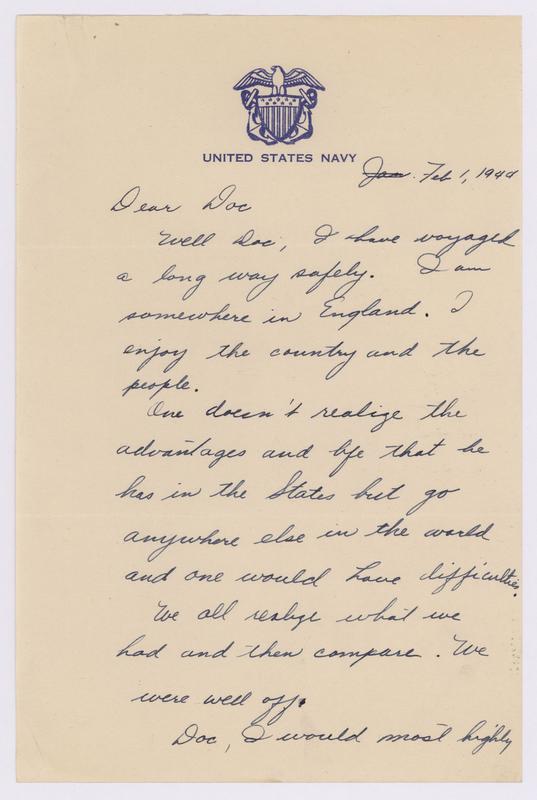 UNITED STATES NAVY
Jan. Feb 1, 1944
Dear Doc
Well Doc, I have voyaged
a long way safely. I am
somewhere in England. I
enjoy the country and the
people.
One doesn't realize the
advantages and life that he
has in the States but go
anywhere else in the world
and one would have difficulties.
We all realize what we
had and then compare. We
were well off.
Doc, I would most highly